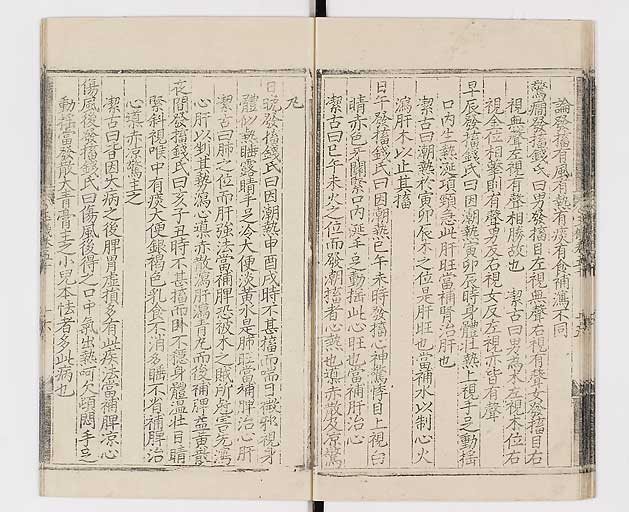 論發搐有風有熱有痰有食補瀉不同
驚癇發搐錢氏曰男發搐目左視無聲右視有聲女發搐目右
視無聲左視有聲相勝故也 潔古曰男爲木左視木位右
視金位相擊則有聲男反右視女反左視亦皆有聲
早辰發搐錢氏曰因潮熱寅卯辰時身體壯熱上視手足動搖
口內生熱涎項頸急此肝旺當補腎治肝也
潔古曰潮熱於寅卯辰木之位是肝旺也當補水以制心火
瀉肝木以止其搐
日午發搐錢氏曰因潮熱巳午未時發搐心神驚悸目上視白
睛赤色牙關緊口內涎手足動搖此心旺也當補肝治心
潔古曰巳午未火之位而發潮搐者心熱也導赤散及凉驚
丸
日晚發搐錢氏曰因潮熱申酉戌時不甚搐而喘目微斜視身
體似熱睡露睛手足冷大便淡黃水是肺旺當補脾治心肝
潔古曰肺之位而肝強法當補脾恐被木之賊所虐害先瀉
心肝以剉其勢瀉心導赤散瀉肝瀉青丸而後補脾益黃散
夜間發搐錢氏曰亥子丑時不甚搐而臥不穩身體溫壯目睛
緊斜視喉中有痰大便銀褐色乳食不消多睡不省補脾治
心導赤凉驚主之
潔古曰皆因大病之後脾胃虛損多有此疾法當補脾凉心
傷風後發搐錢氏曰傷風後得之口中氣出熱呵欠頓悶手足
動搖當發散大青膏主之小兒本怯者多此病也